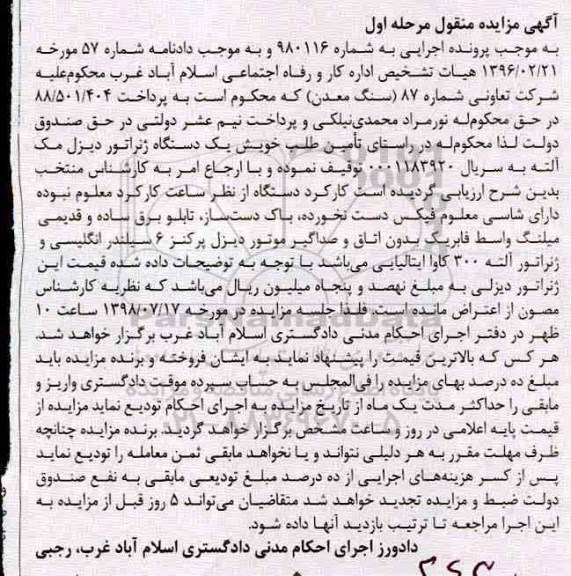 آگهی مزایده منقول مرحله اول
به موجب پرونده اجرایی به شماره ۹۸۰۱۱۶ و به موجب دادنامه شماره ۵۷ مورخه
۱۳۹۶/۰۲/۲۱ هیات تشخیص اداره کار و رفاه اجتماعی اسلام آباد غرب محکوم‌علیه
شرکت تعاونی شماره ۸۷ (سنگ معدن) که محکوم است به پرداخت ۸۸/۵۰۱/۴۰۴
در حق محکوم‌له نورمراد محمدی‌نیلکی و پرداخت نیم عشر دولتی در حق صندوق
دولت لذا محکوم‌له در راستای تأمین طلب خویش یک دستگاه ژنراتور دیزل مک
آلته به سریال ۰۰۰۱۱۸۳۹۲۰ توقیف نموده و با ارجاع امر به کارشناس منتخب
بدین شرح ارزیابی گردیده است کارکرد دستگاه از نظر ساعت کارکرد معلوم نبوده
دارای شاسی معلوم فیکس دست نخورده، باک دست‌ساز، تابلو برق ساده و قدیمی
میلنگ واسط فابریک بدون اتاق و صداگیر موتور دیزل پرکنز ۶ سیلندر انگلیسی و
ژنراتور آلته ۳۰۰ کاوا ایتالیایی می‌باشد با توجه به توضیحات داده شده قیمت این
ژنراتور دیزلی به مبلغ نهصد و پنجاه میلیون ریال می‌باشد که نظریه کارشناس
مصون از اعتراض مانده است. فلذا جلسه مزایده در مورخه ۱۳۹۸/۰۷/۱۷ ساعت ۱۰
ظهر در دفتر اجرای احکام مدنی دادگستری اسلام آباد غرب برگزار خواهد شد.
هر کس که بالاترین قیمت را پیشنهاد نماید به ایشان فروخته و برنده مزایده باید
مبلغ ده درصد بهای مزایده را فی‌المجلس به حساب سپرده موقت دادگستری واریز و
مابقی را حداکثر مدت یک ماه از تاریخ مزایده به اجرای احکام تودیع نماید مزایده از
قیمت پایه اعلامی در روز و ساعت مشخص برگزار خواهد گردید. برنده مزایده چنانچه
ظرف مهلت مقرر به هر دلیلی نتواند و یا نخواهد مابقی ثمن معامله را تودیع نماید
پس از کسر هزینه‌های اجرایی از ده درصد مبلغ تودیعی مابقی به نفع صندوق
دولت ضبط و مزایده تجدید خواهد شد متقاضیان می‌تواند ۵ روز قبل از مزایده به
این اجرا مراجعه تا ترتیب بازدید آنها داده شود.
دادورز اجرای احکام مدنی دادگستری اسلام آباد غرب، رجبی